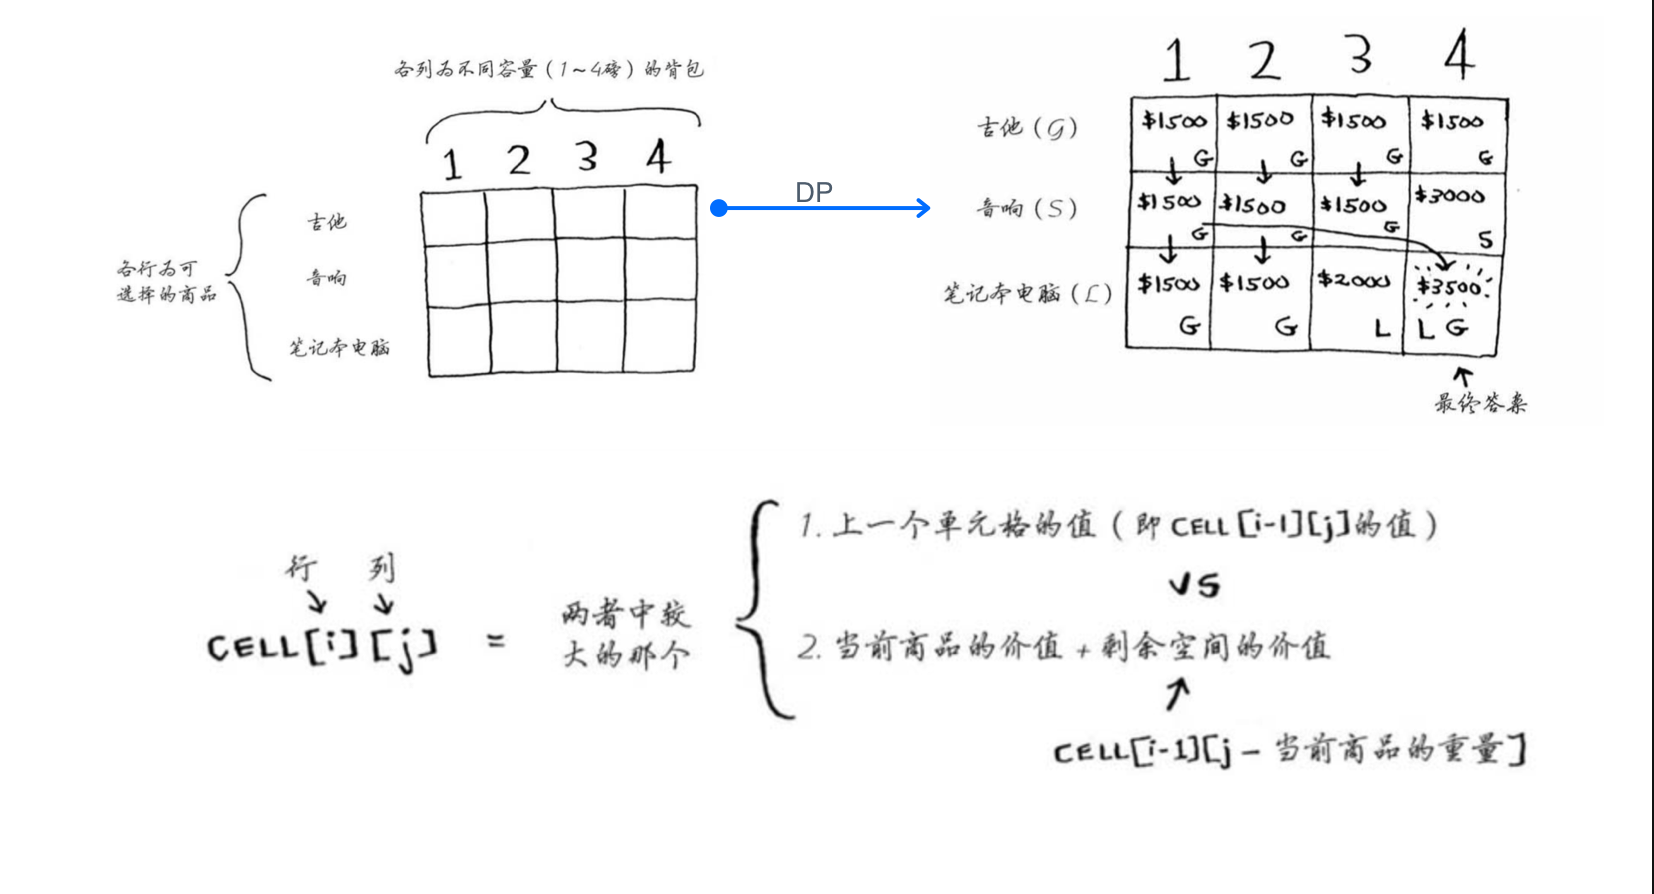 各列为不同容量（1～4磅）的背包
1 2 3 4
各行为可
选择的商品
吉他
音响
笔记本电脑
DP
1 2 3 4
吉他（G）
$1500 G $1500 G $1500 G $1500 G
音响（S）
$1500 G $1500 G $1500 G $3000 S
笔记本电脑（L）
$1500 G $1500 G $2000 L $3500 L G
最终答案
行 列
CELL[i][j] = 两者中较
大的那个
1. 上一个单元格的值（即CELL[i-1][j]的值）
VS
2. 当前商品的价值 + 剩余空间的价值
CELL[i-1][j - 当前商品的重量]